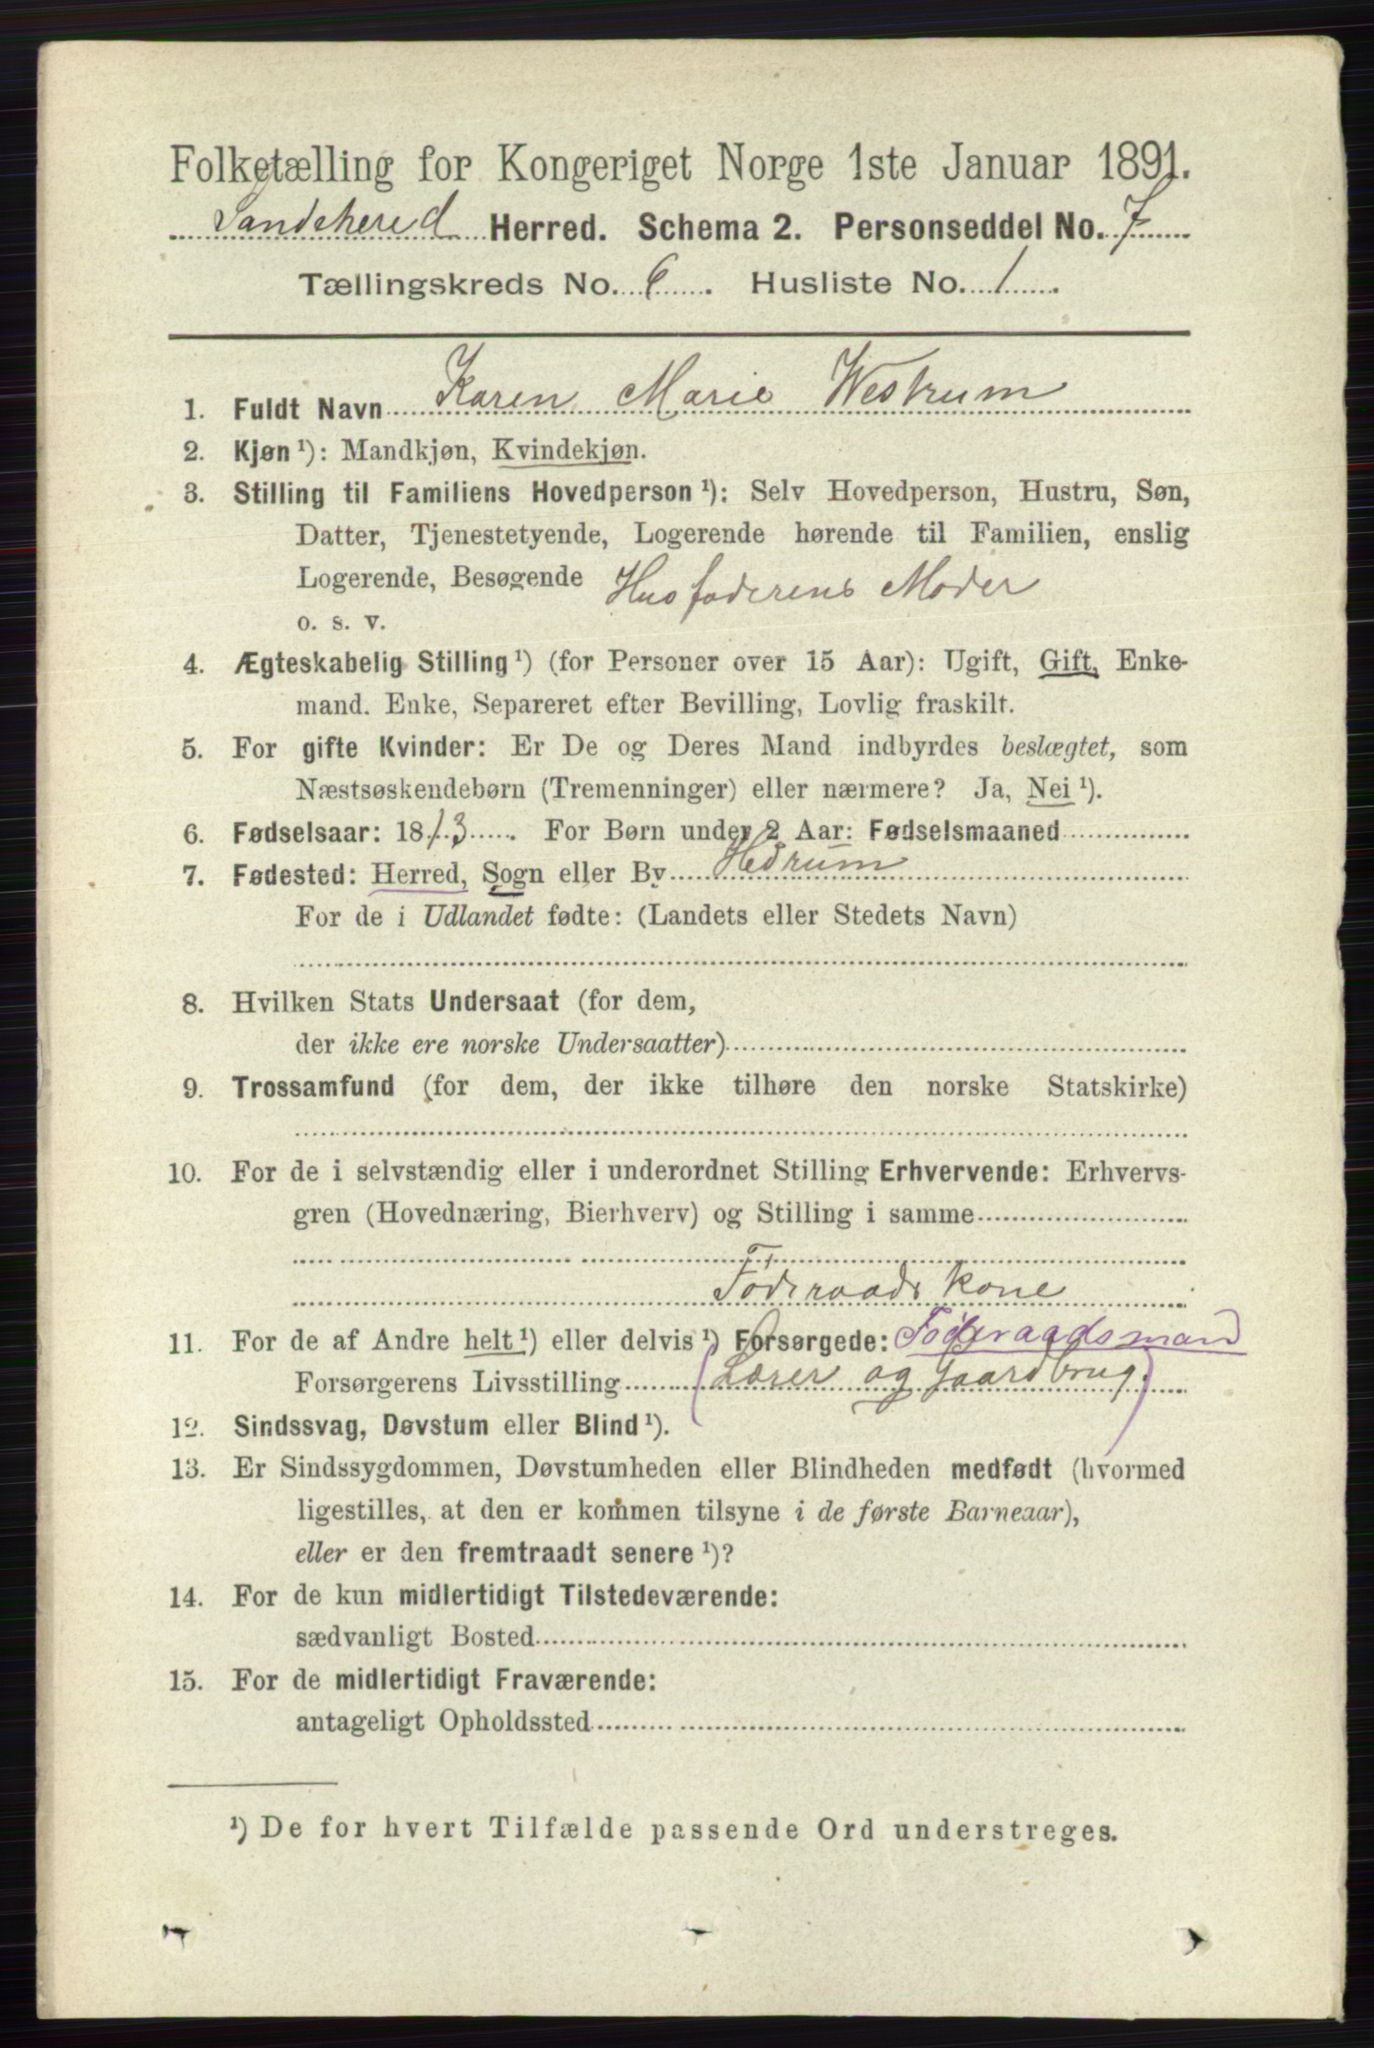 Folketælling for Kongeriget Norge 1ste Januar 1891.
Sandeherred Herred. Schema 2. Personseddel No. 7
Tællingskreds No. 6. Husliste No. 1.
1. Fuldt Navn Karen Marie Westrum
2. Kjøn ¹): Mandkjøn, Kvindekjøn.
3. Stilling til Familiens Hovedperson ¹): Selv Hovedperson, Hustru, Søn,
Datter, Tjenestetyende, Logerende hørende til Familien, enslig
Logerende, Besøgende Husfaderens Moder
o. s. v.
4. Ægteskabelig Stilling ¹) (for Personer over 15 Aar): Ugift, Gift, Enke-
mand. Enke, Separeret efter Bevilling, Lovlig fraskilt.
5. For gifte Kvinder: Er De og Deres Mand indbyrdes beslægtet, som
Næstsøskendebørn (Tremenninger) eller nærmere? Ja, Nei ¹).
6. Fødselsaar: 1813. For Børn under 2 Aar: Fødselsmaaned
7. Fødested: Herred, Sogn eller By Hedrum
For de i Udlandet fødte: (Landets eller Stedets Navn)
8. Hvilken Stats Undersaat (for dem,
der ikke ere norske Undersaatter)
9. Trossamfund (for dem, der ikke tilhøre den norske Statskirke)
10. For de i selvstændig eller i underordnet Stilling Erhvervende: Erhvervs-
gren (Hovednæring, Bierhverv) og Stilling i samme
Föderaads Kone
11. For de af Andre helt ¹) eller delvis ¹) Forsørgede: Föderaadsmand
Forsørgerens Livsstilling (Lærer og Gaardbrug)
12. Sindssvag, Døvstum eller Blind ¹).
13. Er Sindssygdommen, Døvstumheden eller Blindheden medfødt (hvormed
ligestilles, at den er kommen tilsyne i de første Barneaar),
eller er den fremtraadt senere ¹)?
14. For de kun midlertidigt Tilstedeværende:
sædvanligt Bosted
15. For de midlertidigt Fraværende:
antageligt Opholdssted
¹) De for hvert Tilfælde passende Ord understreges.